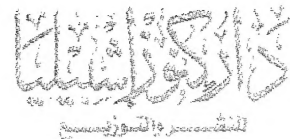 دار كنوز إشبيليا
للنشر والتوزيع